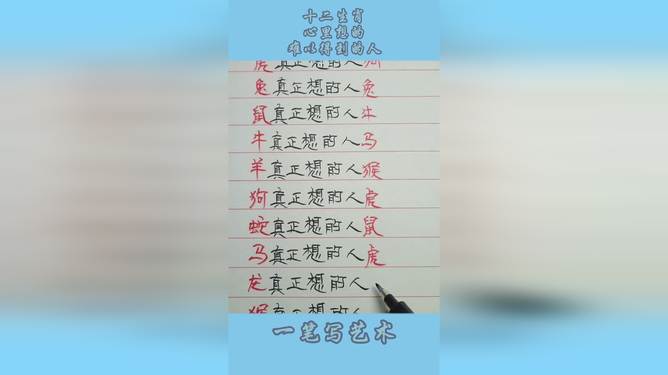 十二生肖
心里想的
难以得到的人
虎真正想的人狗
兔真正想的人兔
鼠真正想的人牛
牛真正想的人马
羊真正想的人猴
狗真正想的人虎
蛇真正想的人鼠
马真正想的人虎
龙真正想的人
猴真正想的人
一笔写艺术